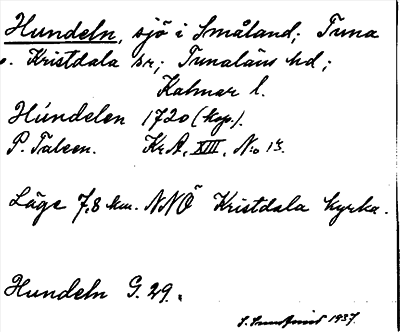 Hundeln, sjö i Småland; Tuna
o. Kristdala sr; Tunaläns hd;
Kalmar l.
Húndelen 1720 (kop.).
P. Talcen. KrA, XIII, No 13.
Läge 7,8 km. NNÖ Kristdala kyrka.
Hundeln G. 29.
1937.